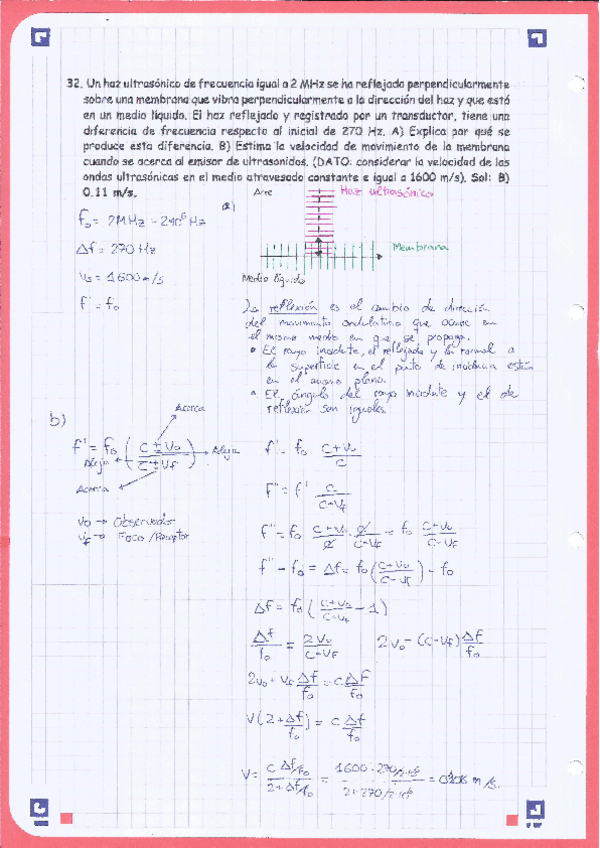 32. Un haz ultrasónico de frecuencia igual a 2 MHz se ha reflejado perpendicularmente
sobre una membrana que vibra perpendicularmente a la dirección del haz y que está
en un medio líquido. El haz reflejado y registrado por un transductor, tiene una
diferencia de frecuencia respecto al inicial de 270 Hz. A) Explica por qué se
produce esta diferencia. B) Estima la velocidad de movimiento de la membrana
cuando se acerca al emisor de ultrasonidos. (DATO: considerar la velocidad de las
ondas ultrasónicas en el medio atravesado constante e igual a 1600 m/s). Sol: B)
0.11 m/s.
a)
Aire
Haz ultrasónico
Membrana
Medio líquido
f₀ = 2MHz = 2·10⁶ Hz
Δf = 270 Hz
vs = 1600 m/s
f' = f₀
La reflexión es el cambio de dirección
del movimiento ondulatorio que ocurre en
el mismo medio en que se propaga.
• El rayo incidente, el reflejado y la normal a
la superficie en el punto de incidencia están
en el mismo plano.
• El ángulo del rayo incidente y el de
reflexión son iguales.
b)
Acerca
f' = f₀ ( c ± Vo / c ± Vf )
Aleja
Aleja
Acerca
vo → Observador
vf → Foco /Receptor
f' = f₀ c + vo / c
f'' = f' c / c - vf
f'' = f₀ c + vo / c · c / c - vf = f₀ c + vo / c - vf
f'' - f₀ = Δf = f₀ ( c + vo / c - vf ) - f₀
Δf = f₀ ( c + vo / c - vf - 1 )
Δf / f₀ = 2vo / c - vf 2vo = (c - vf) Δf / f₀
2vo + vf Δf / f₀ = c Δf / f₀
V ( 2 + Δf / f₀ ) = c Δf / f₀
V = c Δf/f₀ / 2 + Δf/f₀ = 1600 · 270/2·10⁶ / 2 + 270/2·10⁶ = m/s.